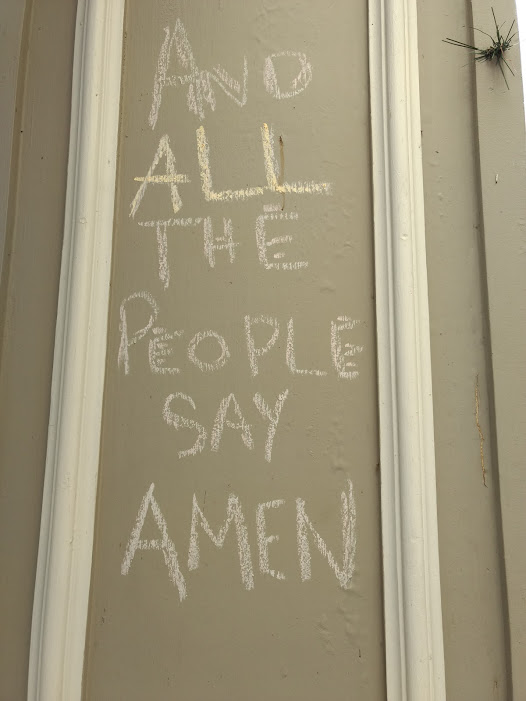 AND
ALL
THE
PEOPLE
SAY
AMEN